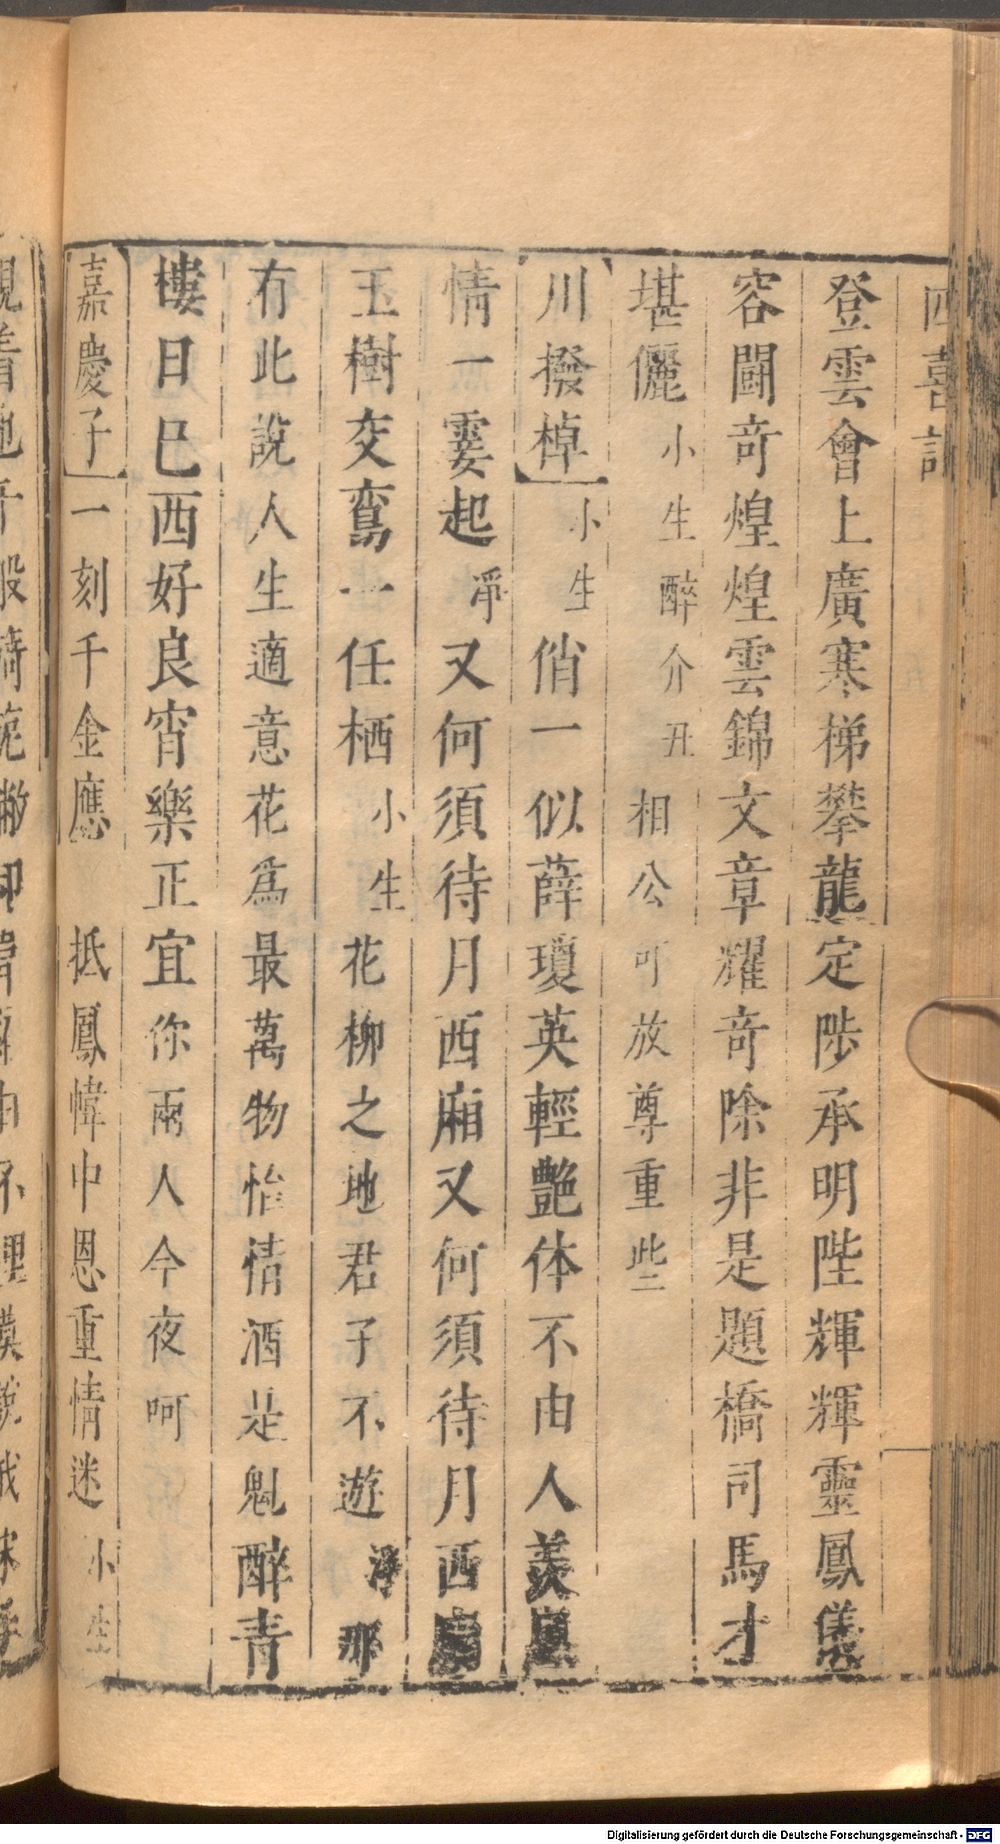 四喜記
登雲會上廣寒梯攀龍定陟承明陛輝輝靈鳳儀
容鬭奇煌煌雲錦文章耀奇除非是題橋司馬才
堪儷小生醉介丑相公可放尊重些
川撥棹小生俏一似薛瓊英輕艷体不由人羨
情一霎起淨又何須待月西廂又何須待月西廂
玉樹交鸞一任栖小生花柳之地君子不遊淨那
有此說人生適意花為最萬物怡情酒是魁醉青
樓日巳西好良宵樂正宜你兩人今夜呵
嘉慶子一刻千金應抵鳳幃中恩重情迷小生
Digitalisierung gefördert durch die Deutsche Forschungsgemeinschaft - DFG